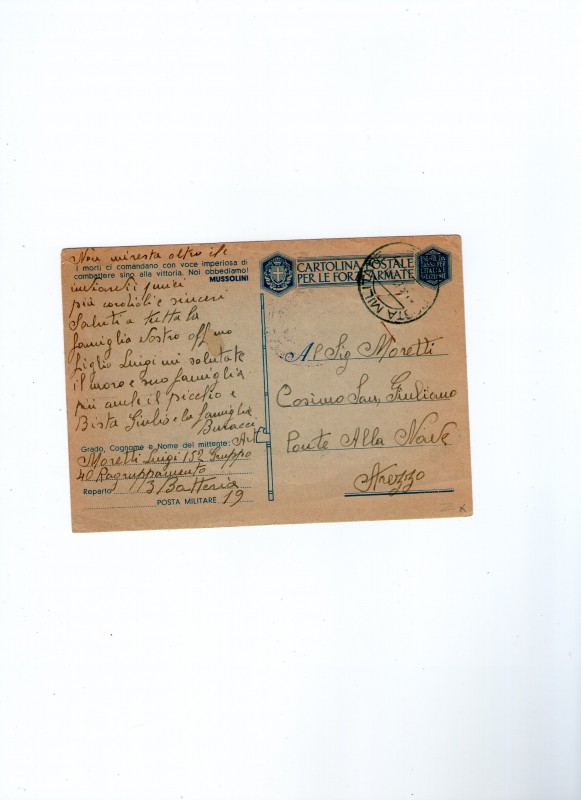 Non miresta altro che
I morti ci comandano con voce imperiosa di
combattere sino alla vittoria. Noi obbediamo!
MUSSOLINI
inviarvi i miei
più cordiali e sinceri
Saluti a tutta la
famiglia vostro aff mo
figlio Luigi mi salutate
il moro e suo famiglia
più anche il picchio e
Bista Giulio e la famiglia
Buracci
Grado, Cognome e Nome del mittente: Art
Moretti Luigi 152 Gruppo
40 Raggruppamento
Reparto 3/Batteria
POSTA MILITARE 19
CARTOLINA POSTALE
PER LE FORZE ARMATE
POSTA MILITARE
Al Sig Moretti
Cosimo San, Giuliano
Ponte Alla Nave
Arezzo